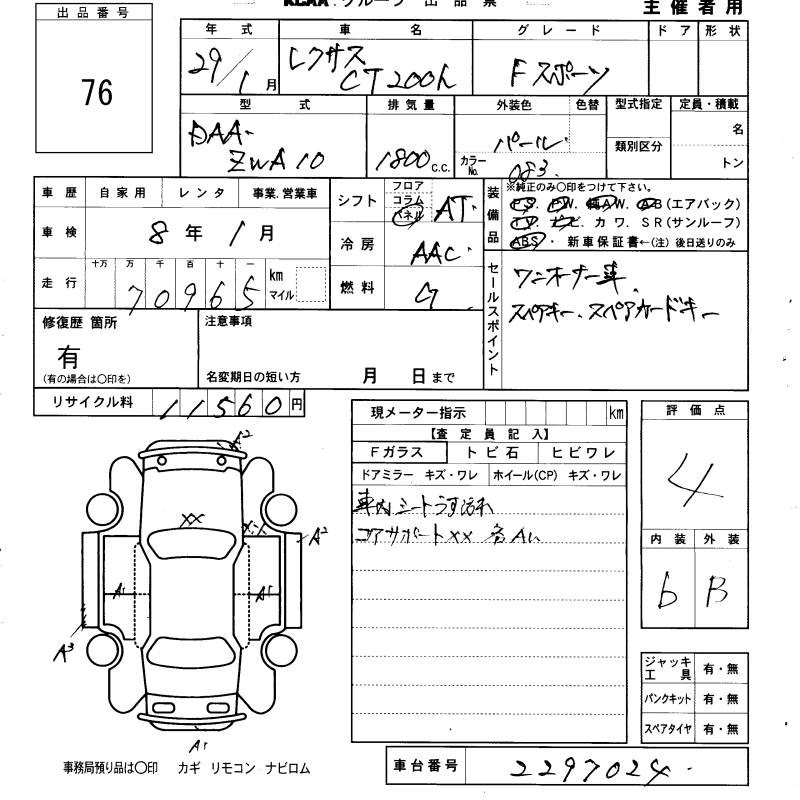 KCAA グループ 出品票
主催者用
出品番号
76
年式 車名 グレード ドア 形状
29/1月 レクサス CT200h Fスポーツ
型式 排気量 外装色 色替 型式指定 定員・積載
DAA-ZWA10 1800 c.c. パール カラーNo. 083 類別区分 名 トン
車歴 自家用 レンタ 事業.営業車
車検 8年1月
走行 十万 万 千 百 十 一 km マイル
70965
シフト フロア コラム パネル AT
冷房 AAC
燃料 G
装備品 ※純正のみ〇印をつけて下さい。
PS. PW. AW. AB(エアバック)
TV. ナビ. カワ. SR(サンルーフ)
ABS・新車保証書←(注)後日送りのみ
セールスポイント
ワンオーナー車
スペアキー、スペアカードキー
修復歴 箇所 注意事項
有
(有の場合は〇印を) 名変期日の短い方 月 日まで
リサイクル料 11560円
現メーター指示 km
【査定員記入】
Fガラス トビ石 ヒビワレ
ドアミラー キズ・ワレ ホイール(CP) キズ・ワレ
車内シートうす汚れ
コアサポートXX 各A
評価点
4
内装 外装
b B
ジャッキ 工具 有・無
パンクキット 有・無
スペアタイヤ 有・無
A2
XX
A2
A1 A1
A3
A1
事務局預り品は〇印 カギ リモコン ナビロム
車台番号 2297024